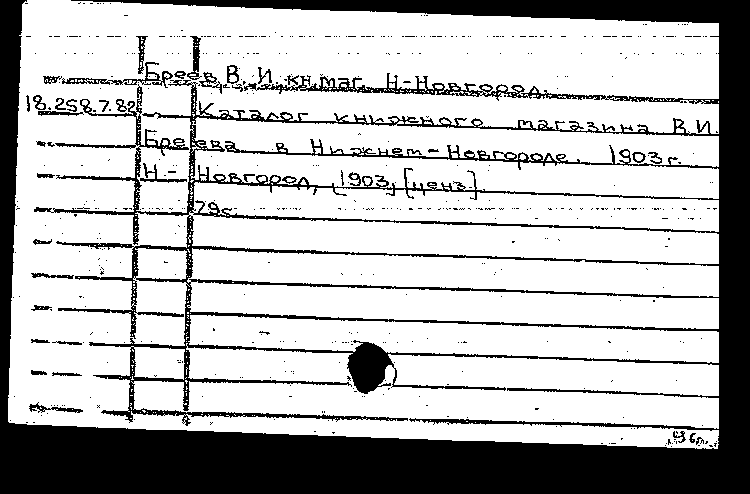 Бреев В. И. кн. маг. Н-Новгород.
18.258.7.82 Каталог книжного магазина В.И.
Бреева в Нижнем-Новгороде. 1903 г.
Н-Новгород, 1903, [ценз].
79 с.